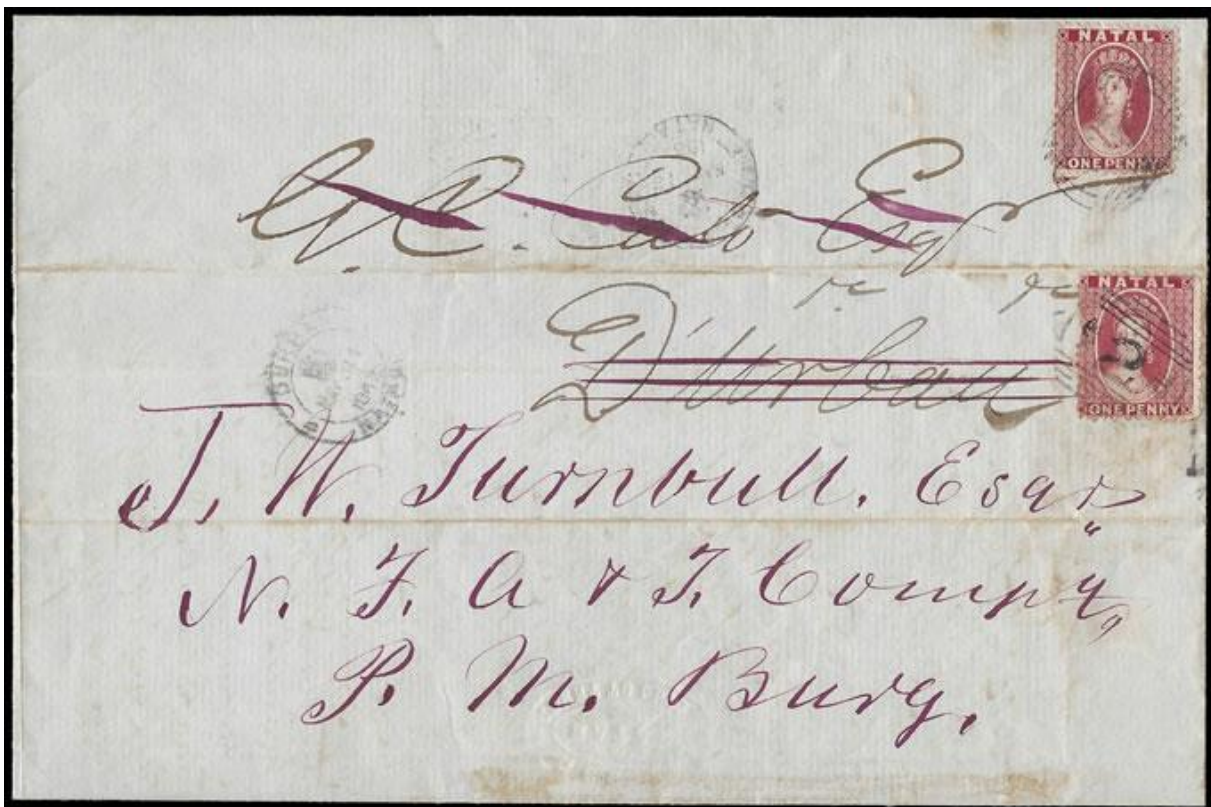 NATAL
ONE PENNY
G. C. Cato Esqr
D'Urban
NATAL
ONE PENNY
DURBAN
NATAL
J. W. Turnbull. Esqr
N. F. A & I. Compy,
P. M. Burg.